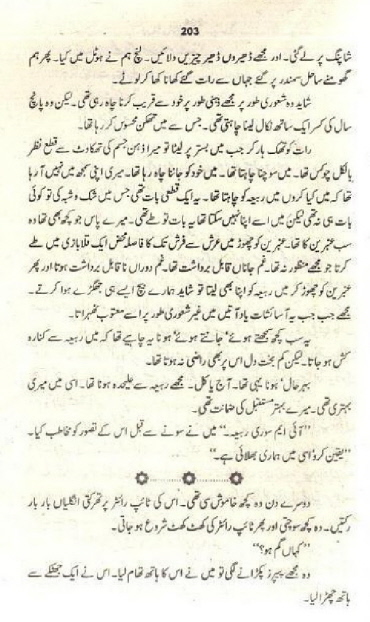 203
شاپنگ پر لے گئی۔ اور مجھے ڈھیروں ڈھیر چیزیں دلائیں۔ لنچ ہم نے ہوٹل میں کیا۔ پھر ہم
گھومنے ساحل سمندر پر گئے جہاں سے رات گئے کھانا کھا کر لوٹے۔
شاید وہ شعوری طور پر مجھے ذہنی طور پر خود سے قریب کرنا چاہ رہی تھی۔ لیکن وہ پانچ
سال کی کسر ایک ساتھ نکال لینا چاہتی تھی۔ جس سے میں تھکن محسوس کر رہا تھا۔
رات کو تھک ہار کر جب میں بستر پر لیٹا تو میرا ذہن جسم کی تھکاوٹ سے قطع نظر
بالکل چوکس تھا۔ میں سوچنا چاہتا تھا۔ میں خود کو جاننا چاہ رہا تھا۔ میری اپنی سمجھ میں نہیں آ رہا
تھا کہ میں کیا کروں میں ربیعہ کو چاہتا تھا۔ یہ ایک قطعی بات تھی جس میں شک و شبہ کی تو کوئی
بات ہی نہ تھی لیکن میں اسے اپنا نہیں سکتا تھا یہ بات تو طے تھی۔ میرے پاس جو کچھ بھی تھا وہ
سب عنبرین کا تھا۔ عنبرین کو چھوڑ میں عرش سے فرش تک کا فاصلہ محض ایک قلابازی میں طے
کرتا جو مجھے منظور نہ تھا۔ غم جاناں قابل برداشت تھا۔ غم دوراں نا قابل برداشت ہوتا اور پھر
عنبرین کو چھوڑ کر میں ربیعہ کو اپنا بھی لیتا تو شاید ہمارے بیچ ایسے ہی جھگڑے ہوا کرتے۔
مجھے جب جب یہ آسائشات یاد آتیں میں غیر شعوری طور پر اسے معتوب ٹھہراتا۔
یہ سب کچھ سمجھتے ہوئے' جانتے ہوئے' ہونا یہ چاہیے تھا کہ میں ربیعہ سے کنارہ
کش ہو جاتا۔ لیکن کم بخت دل اس پر بھی راضی نہ ہوتا تھا۔
بہر حال' ہونا یہی تھا۔ آج یا کل۔ مجھے ربیعہ سے علیحدہ ہونا تھا۔ اسی میں میری
بہتری تھی۔ میرے بہتر مستقبل کی ضمانت تھی۔
"آئی ایم سوری ربیعہ۔" میں نے سونے سے قبل اس کے تصور کو مخاطب کیا۔
"یقین کرو' اسی میں ہماری بھلائی ہے۔"
دوسرے دن وہ کچھ خاموش سی تھی۔ اس کی ٹائپ رائٹر پر تھرکتی انگلیاں بار بار
رکتیں۔ وہ کچھ سوچتی اور پھر ٹائپ رائٹر کی کھٹ کھٹ شروع ہو جاتی۔
"کہاں گم ہو؟"
وہ مجھے پیپرز پکڑانے لگی تو میں نے اس کا ہاتھ تھام لیا۔ اس نے ایک جھٹکے سے
ہاتھ چھڑا لیا۔